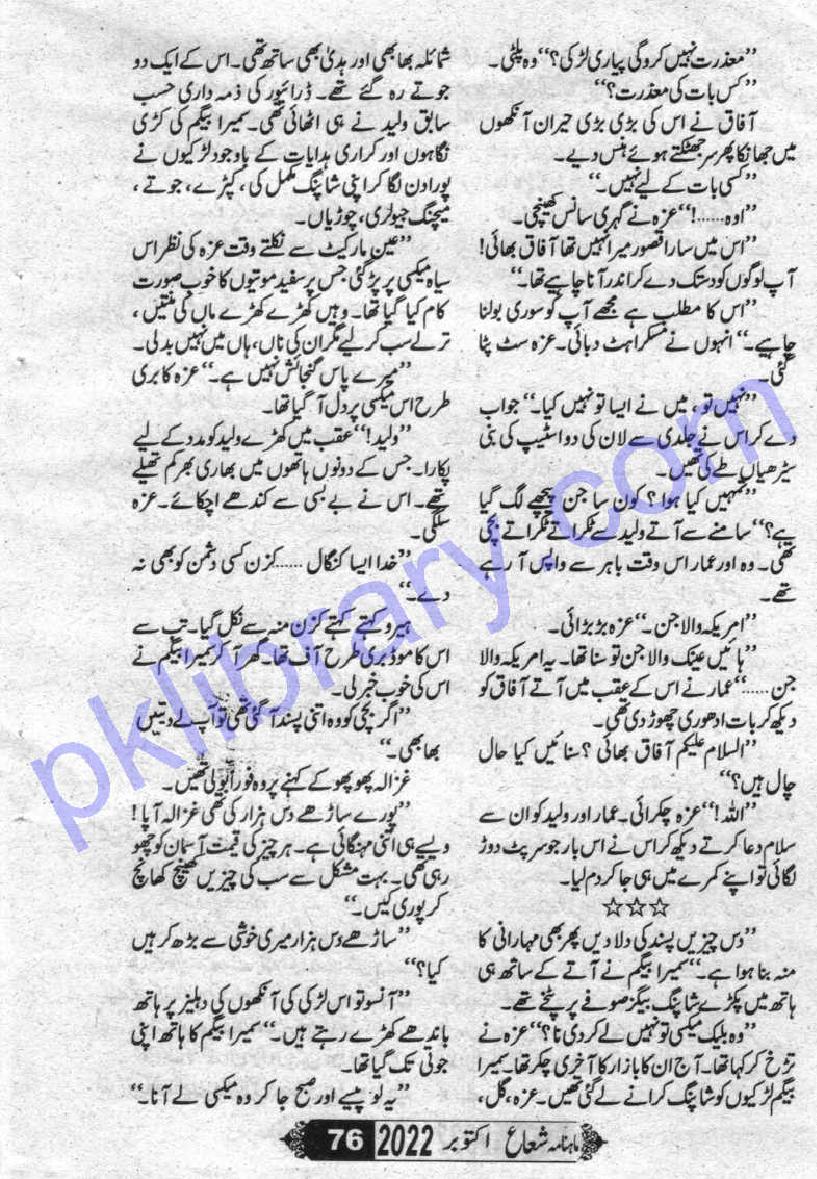 ”معذرت نہیں کروگی پیاری لڑکی؟“ وہ پلٹی۔
”کس بات کی معذرت؟“
آفاق نے اس کی بڑی بڑی حیران آنکھوں
میں جھانکا پھر سر جھٹکتے ہوئے ہنس دیے۔
”کسی بات کے لیے نہیں۔“
”اوہ......!“ عزہ نے گہری سانس کھینچی۔
”اس میں سارا قصور میرا نہیں تھا آفاق بھائی!
آپ لوگوں کو دستک دے کر اندر آنا چاہیے تھا۔“
”اس کا مطلب ہے مجھے آپ کو سوری بولنا
چاہیے۔“ انہوں نے مسکراہٹ دبائی۔ عزہ سٹ پٹا
گئی۔
”نہیں تو، میں نے ایسا تو نہیں کہا۔“ جواب
دے کر اس نے جلدی سے لان کی دو اسٹیپ کی بنی
سیڑھیاں طے کی تھیں۔
”تمہیں کیا ہوا؟ کون سا جن پیچھے لگ گیا
ہے؟“ سامنے سے آتے ولید سے ٹکراتے ٹکراتے بچی
تھی۔ وہ اور عمار اس وقت باہر سے واپس آرہے
تھے۔
”امریکہ والا جن۔“ عزہ بڑبڑائی۔
”ہائیں عینک والا جن تو سنا تھا۔ یہ امریکہ والا
جن......“ عمار نے اس کے عقب میں آتے آفاق کو
دیکھ کر بات ادھوری چھوڑ دی تھی۔
”السلام علیکم آفاق بھائی؟ سنائیں کیا حال
چال ہیں؟“
”اللہ!“ عزہ چکرائی۔ عمار اور ولید کو ان سے
سلام دعا کرتے دیکھ کر اس نے اس بار جو سرپٹ دوڑ
لگائی تو اپنے کمرے میں ہی جا کر دم لیا۔
☆☆☆
”دس چیزیں پسند کی دلا دیں پھر بھی مہارانی کا
منہ بنا ہوا ہے۔“ سمیرا بیگم نے آتے کے ساتھ ہی
ہاتھ میں پکڑے شاپنگ بیگز صوفے پر پٹخے تھے۔
”وہ بلیک میکسی تو نہیں لے کر دی نا؟“ عزہ نے
تڑخ کر کہا تھا۔ آج ان کا بازار کا آخری چکر تھا۔ سمیرا
بیگم لڑکیوں کو شاپنگ کرانے لے گئی تھیں۔ عزہ، گل،
شمائلہ بھابھی اور ہدیٰ بھی ساتھ تھی۔ اس کے ایک دو
جوتے رہ گئے تھے۔ ڈرائیور کی ذمہ داری حسب
سابق ولید نے ہی اٹھائی تھی۔ سمیرا بیگم کی کڑی
نگاہوں اور کراری ہدایات کے باوجود لڑکیوں نے
پورا دن لگا کر اپنی شاپنگ مکمل کی، کپڑے، جوتے،
میچنگ جیولری، چوڑیاں۔
”عین مارکیٹ سے نکلتے وقت عزہ کی نظر اس
سیاہ میکسی پر پڑ گئی جس پر سفید موتیوں کا خوب صورت
کام کیا گیا تھا۔ وہیں کھڑے کھڑے ماں کی منتیں،
ترلے سب کر لیے مگر ان کی ناں، ہاں میں نہیں بدلی۔
”میرے پاس گنجائش نہیں ہے۔“ عزہ کا بری
طرح اس میکسی پر دل آ گیا تھا۔
”ولید!“ عقب میں کھڑے ولید کو مدد کے لیے
پکارا۔ جس کے دونوں ہاتھوں میں بھاری بھرکم تھیلے
تھے۔ اس نے بے بسی سے کندھے اچکائے۔ عزہ
سلگی۔
”خدا ایسا کنگال...... کزن کسی دشمن کو بھی نہ
دے۔“
ہیرو کہتے کہتے کزن منہ سے نکل گیا۔ تب سے
اس کا موڈ بری طرح آف تھا۔ گھر آ کر سمیرا بیگم نے
اس کی خوب خبر لی۔
”اگر بچی کو وہ اتنی پسند آ گئی تھی تو آپ لے دیتیں
بھابھی۔“
غزالہ پھوپھو کے کہنے پر وہ فوراً بولی تھیں۔
”پورے ساڑھے دس ہزار کی تھی غزالہ آپا!
ویسے ہی اتنی مہنگائی ہے۔ ہر چیز کی قیمت آسمان کو چھو
رہی تھی۔ بہت مشکل سے سب کی چیزیں کھینچ کھانچ
کر پوری کیں۔“
”ساڑھے دس ہزار میری خوشی سے بڑھ کر ہیں
کیا؟“
”آنسو تو اس لڑکی کی آنکھوں کی دہلیز پر ہاتھ
باندھے کھڑے رہتے ہیں۔“ سمیرا بیگم کا ہاتھ اپنی
جوتی تک گیا تھا۔
”یہ لو پیسے اور صبح جا کر وہ میکسی لے آنا۔“
ماہنامہ شعاع اکتوبر 2022 76
pklibrary.com